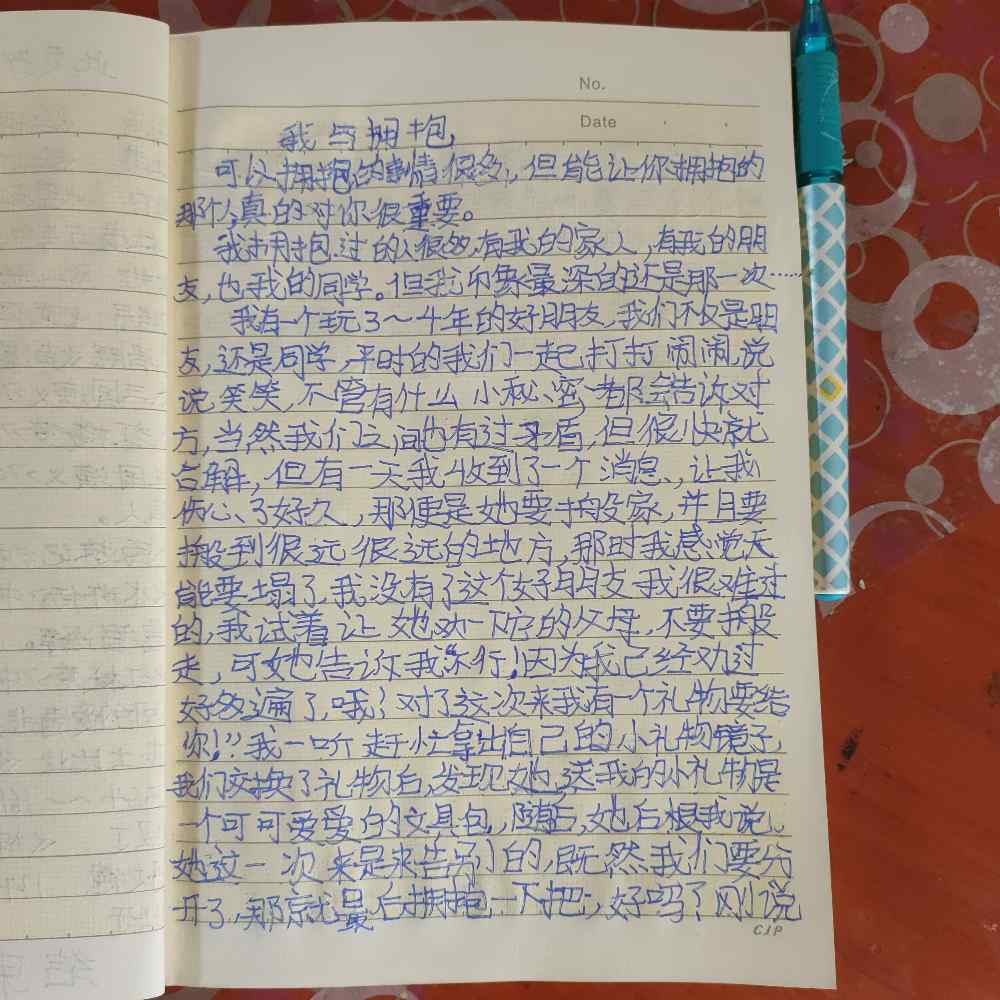 No.
Date
我与拥抱
可以拥抱的事情很多，但能让你拥抱的
那个人真的对你很重要。
我拥抱过的人很多，有我的家人，有我的朋
友，也我的同学。但我印象最深的还是那一次……
我有一个玩了3～4年的好朋友，我们不仅是朋
友，还是同学，平时的我们一起打打闹闹，说
说笑笑，不管有什么小秘密，都会告诉对
方，当然我们之间也有过矛盾，但很快就
合解，但有一天我收到了一个消息，让我
伤心了好久，那便是她要搬家，并且要
搬到很远很远的地方，那时我感觉天
能要塌了，我没有了这个好朋友我很难过
的，我试着让她劝一下它的父母，不要搬
走，可她告诉我“不行！因为我己经劝过
好多遍了，哦！对了这次来我有一个礼物要给
你！”我一听赶忙拿出自己的小礼物镜子，
我们交换了礼物后，发现她送我的小礼物是
一个可可爱爱的文具包，随后，她后根我说，
她这一次来是来告别的，既然我们要分
开了，那就最后拥抱一下把，好吗？刚说
CJP